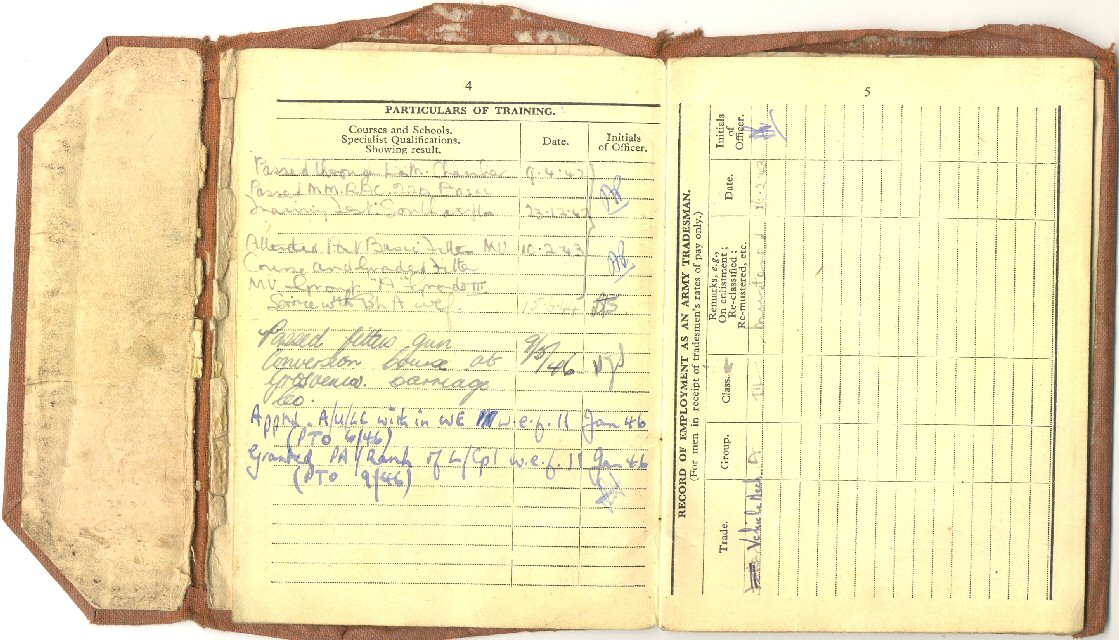 4
PARTICULARS OF TRAINING.
Courses and Schools.
Specialist Qualifications.
Showing result.
Date.
Initials
of Officer.
Passed through Chamber 9.4.42
Passed M.M. Basic
Training Test 23.12.42
Attended Basic Fitter MV 10.2.43
Course and Graded Fitter
MV Group "A" III
Service with wef.
Passed fitters gun 9/5/46
Conversion Course at
carriage
Co.
Apptd. A/U/LC with in WE w.e.f. 11 Jan 46
(PTO 6/46)
Granted PA/Rank of L/Cpl w.e.f. 11 Jan 46
(PTO 9/46)
5
RECORD OF EMPLOYMENT AS AN ARMY TRADESMAN.
(For men in receipt of tradesmen's rates of pay only.)
Trade.
Group.
Class.
Remarks, e.g.,
On enlistment;
Re-classified;
Re-mustered, etc.
Date.
Initials
of
Officer.
Vehicle Mech. A III mustered